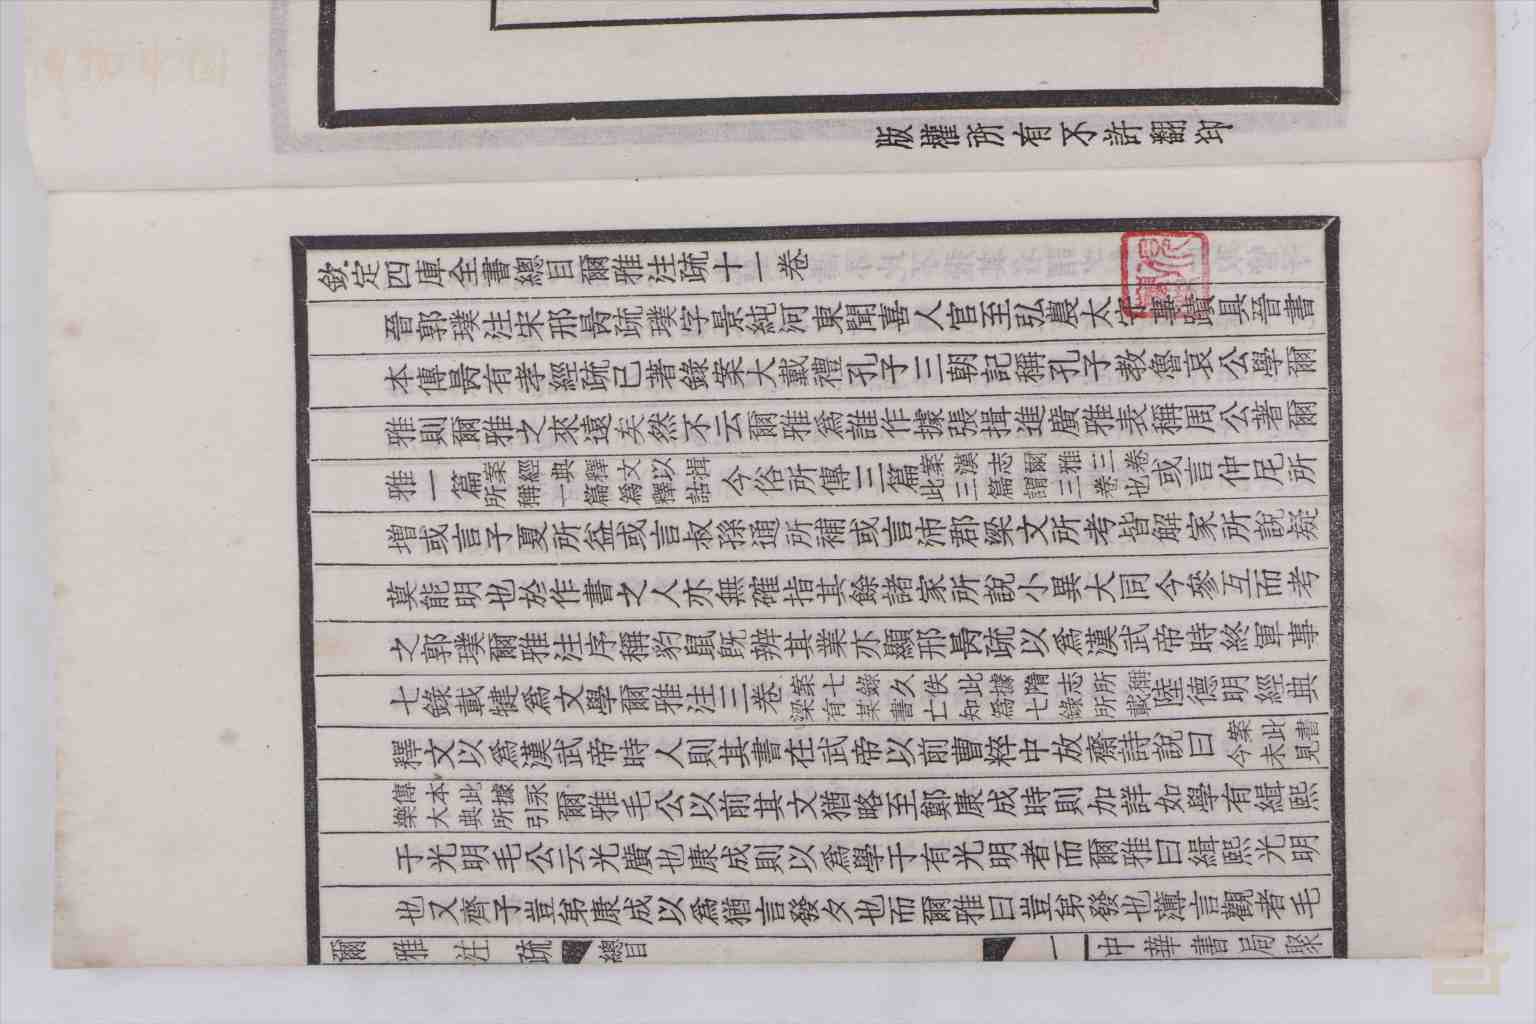 版權所有不許翻印
欽定四庫全書總目爾雅注疏十一卷
晉郭璞注宋邢昺疏璞字景純河東聞喜人官至弘農太守事蹟具晉書
本傳昺有孝經疏已著錄案大戴禮孔子三朝記稱孔子教魯哀公學爾
雅則爾雅之來遠矣然不云爾雅爲誰作據張揖進廣雅表稱周公著爾
雅一篇案經典釋文以揖所稱一篇為釋詁今俗所傳三篇案漢志爾雅三卷此三篇謂三卷也或言仲尼所
增或言子夏所益或言叔孫通所補或言沛郡梁文所考皆解家所說疑
莫能明也於作書之人亦無確指其餘諸家所說小異大同今參互而考
之郭璞爾雅注序稱豹鼠既辨其業亦顯邢昺疏以爲漢武帝時終軍事
七錄載犍爲文學爾雅注三卷案七錄久佚此據隋志所稱梁有某書亡知為七錄所載陸德明經典
釋文以爲漢武帝時人則其書在武帝以前曹粹中放齋詩說曰案此書今未見
傳本此據永樂大典所引爾雅毛公以前其文猶略至鄭康成時則加詳如學有緝熙
于光明毛公云光廣也康成則以爲學于有光明者而爾雅曰緝熙光明
也又齊子豈弟康成以爲猶言發夕也而爾雅曰豈弟發也薄言觀者毛
爾雅注疏 總目 一 中華書局聚